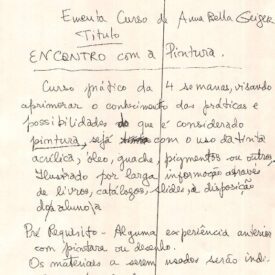 Ementa Curso de Anna Bella Geiger
Título
ENCONTRO com a Pintura.
Curso prático da 4 semanas, visando
aprimorar o conhecimento das práticas e
possibilidades do que é considerado
pintura, seja com o uso da tinta
acrílica, óleo, guache, pigmentos ou outros.
Ilustrado por larga informação através
de livros, catálogos, slides, à disposição
dos aluno/a
Pré Requisito - Alguma experiência anterior
com pintura ou desenho.
Os materiais a serem usados serão indi-